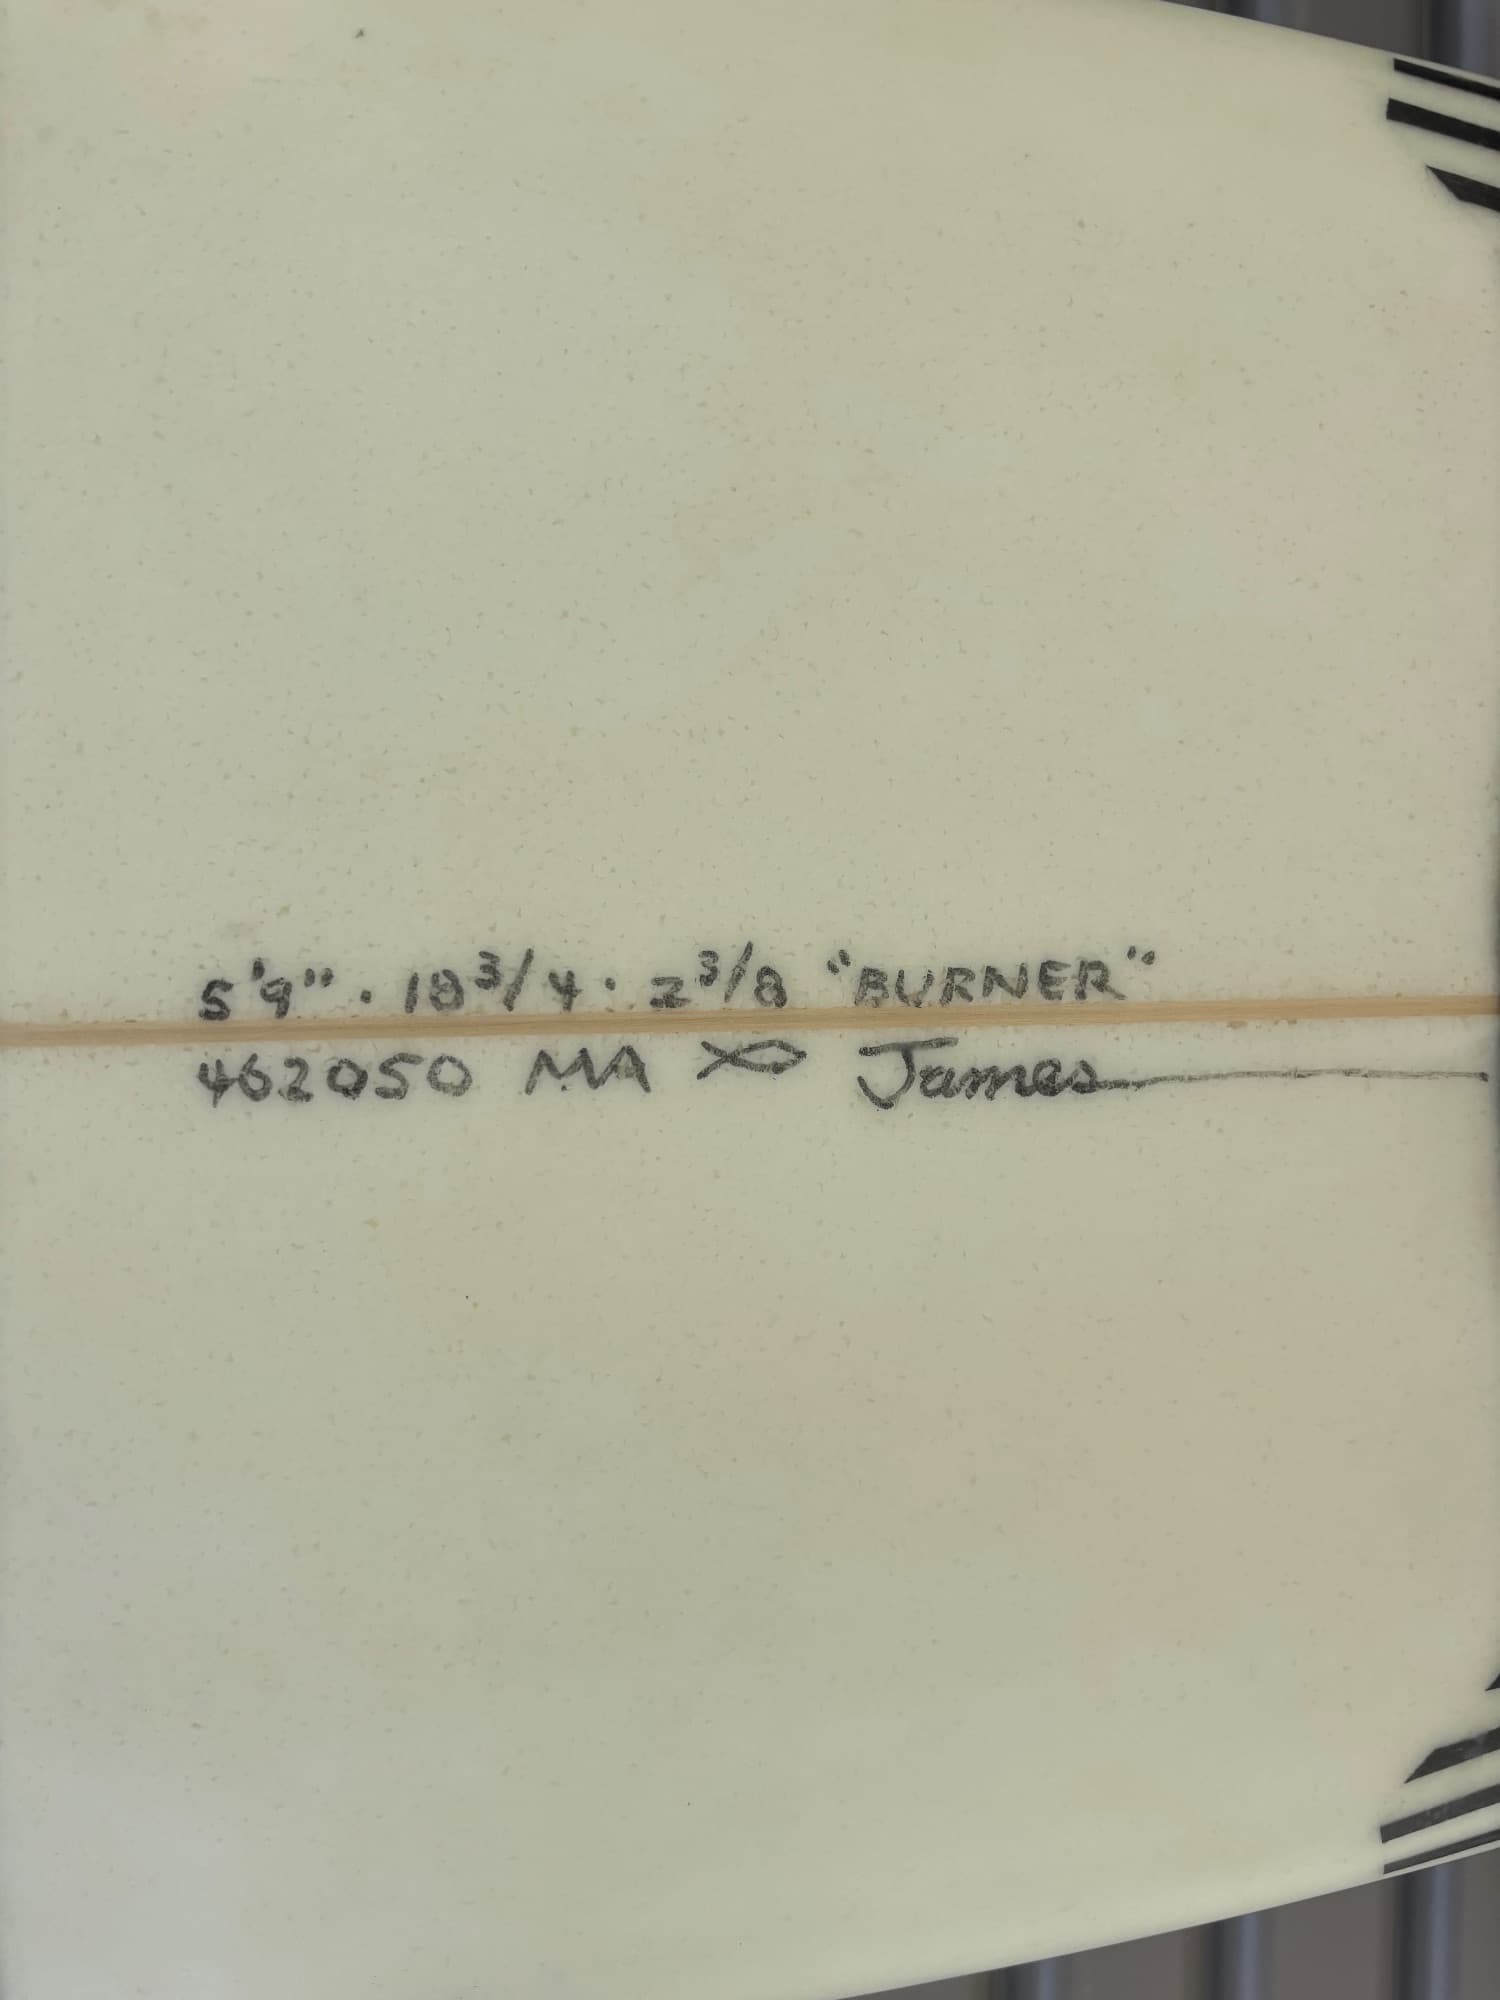 5'9" · 18 3/4 · 2 3/8 "BURNER"
462050 MA James